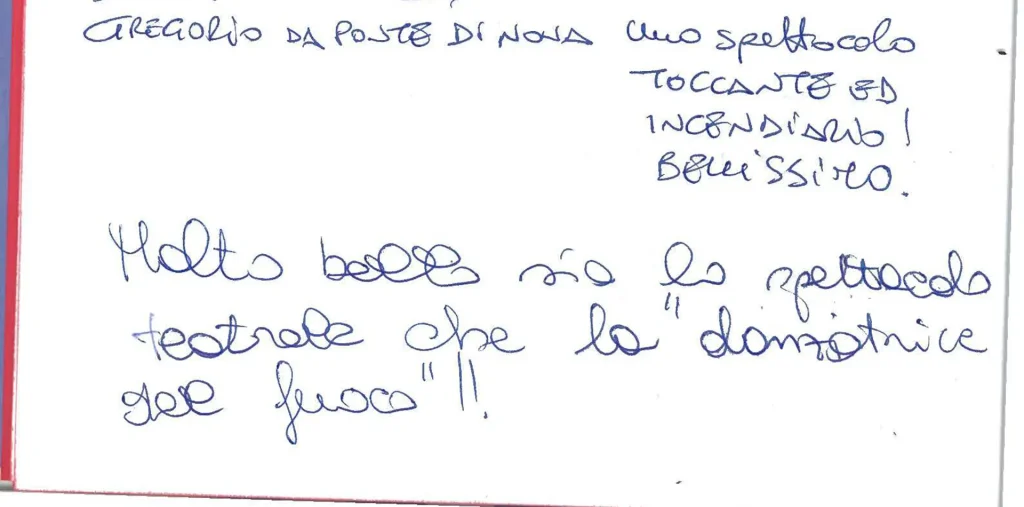 GREGORIO DA PONTE DI NONA Uno spettacolo
TOCCANTE ED
INCENDIARIO!
BELLISSIMO.
Molto bello sia lo spettacolo
teatrale che la "danzatrice
del fuoco"!!